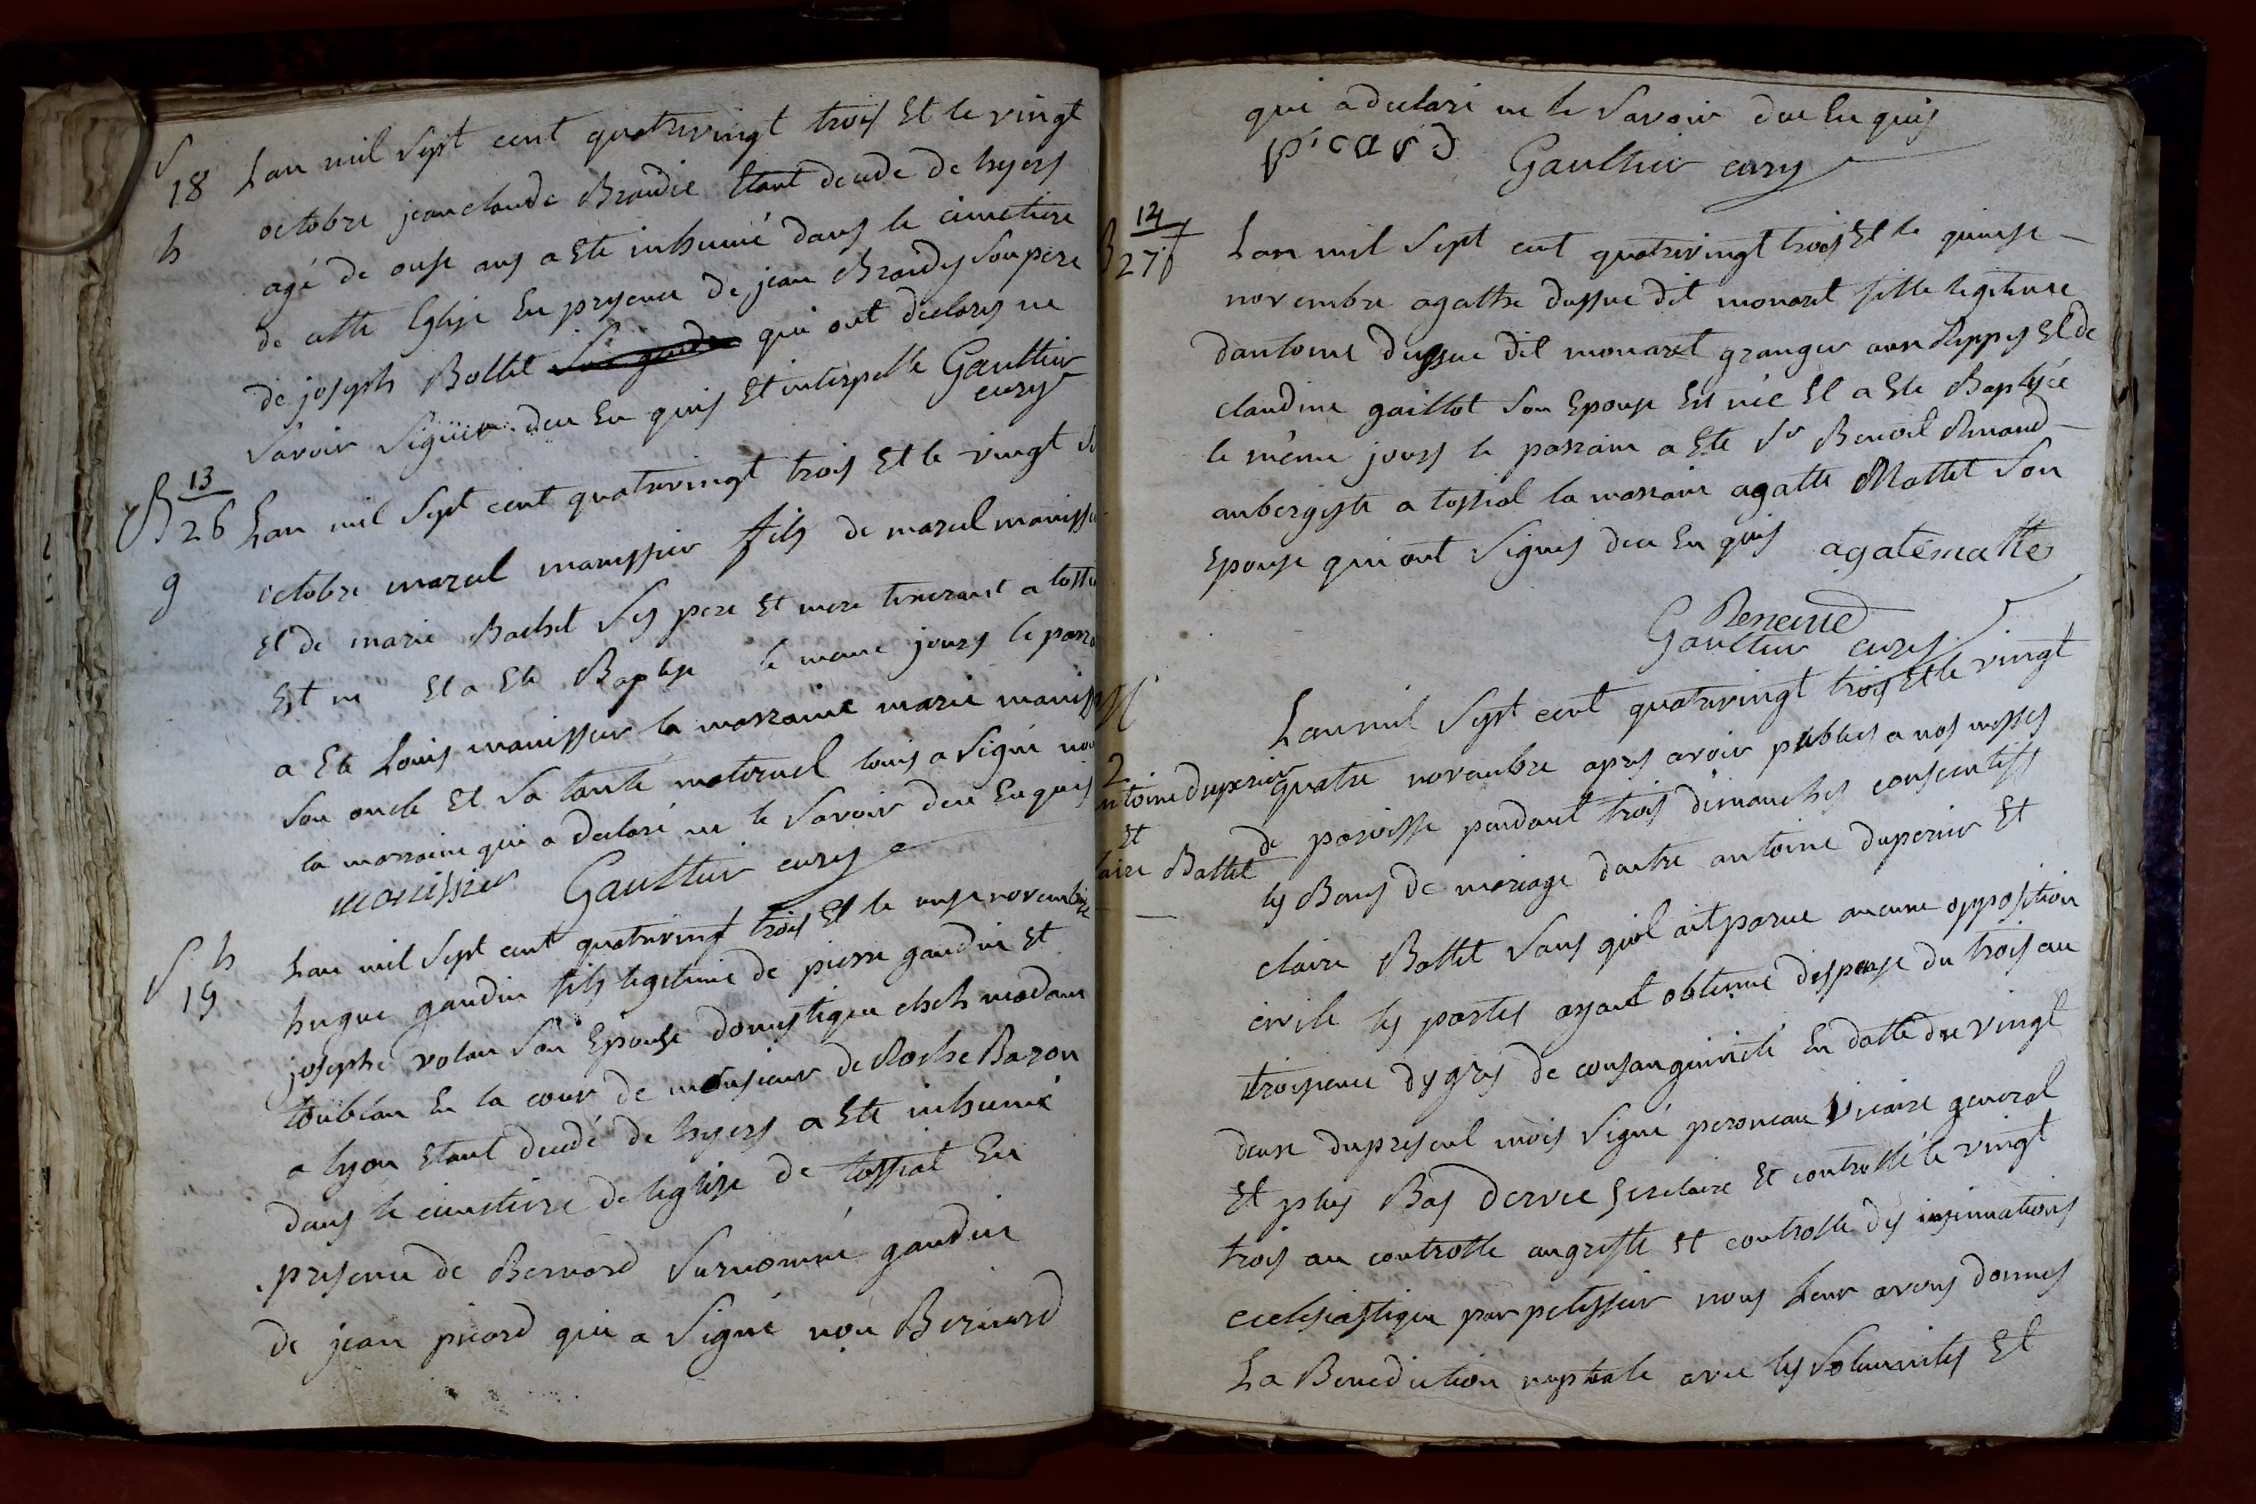 S
18
h
Lan mil sept cent quatrevingt trois Et le vingt
octobre jean claude Brandie Etant decede de hyers
agé de onse ans a Ete inhumé dans le cimetiere
de cette Eglise En presence de jean Brandy son pere
de joseph Bollet qui ont declares ne
savoir signer deu En quis Et interpelle Gaultier
cury
B 13
26
g
Lan mil sept cent quatrevingt trois Et le vingt
octobre marcel manissier fils de marcel manissie
Et de marie Bachet ses pere Et mere tenerant a toss
Est ne Et a Ete Baptise le meme jours le parra
a Ete Louis manissier la marraine marie maniss
son oncle Et sa tante maternel louis a signé non
la marraine qui a declaré ne le savoir deu Enquis
manissier Gaultier cury
S h
19
Lan mil sept cent quatrevingt trois Et le onse novembre
hugue gaudin fils legitime de pierre gaudin Et
josephe volan son Epouse domestique cheh madame
toublan En la cour de monsieur de Roche Baron
a lyon Etant decedé de hyers a Ete inhumé
dans le cimetiere de leglise de tossiat En
presence de Bernard surnommé gaudin
de jean picard qui a signé non Bernard
qui a declaré ne le savoir deu En quis
picard Gaultier cury
14
B 27
Lan mil sept cent quatrevingt trois Et le quinse
novembre agathe dussue dit monaret fille legitime
dantoine dussue dit monaret granger aux Rippes Et de
claudine gaillot son Epouse Est née Et a Ete Baptisée
le même jours le parrain a Ete Sr Benoit Renaud
aubergiste a tossiat la marraine agatte Mattet son
Epouse qui ont signes deu En quis agatemattes
Reneaud
Gaultier cury
M
2
antoine duperier
Et
claire Battet
Lan mil sept cent quatrevingt trois Et le vingt
quatre novembre apres avoir publies a nos messes
de paroisse pendant trois dimanches consecutifs
les Bans de mariage dantre antoine duperier Et
claire Battet sans quil ait parue aucune opposition
civile les partes ayant obtenue dispense du trois au
troisieme degres de consanguinité En datte du vingt
deux du present mois signé peroneau vicaire general
Et plus Bas dervie secretaire Et controllé le vingt
trois au controlle augreffe Et controlle des insinuations
ecclesiastique par petissier nous leur avons donnes
La Benediction nuptiale avec les solennites Et